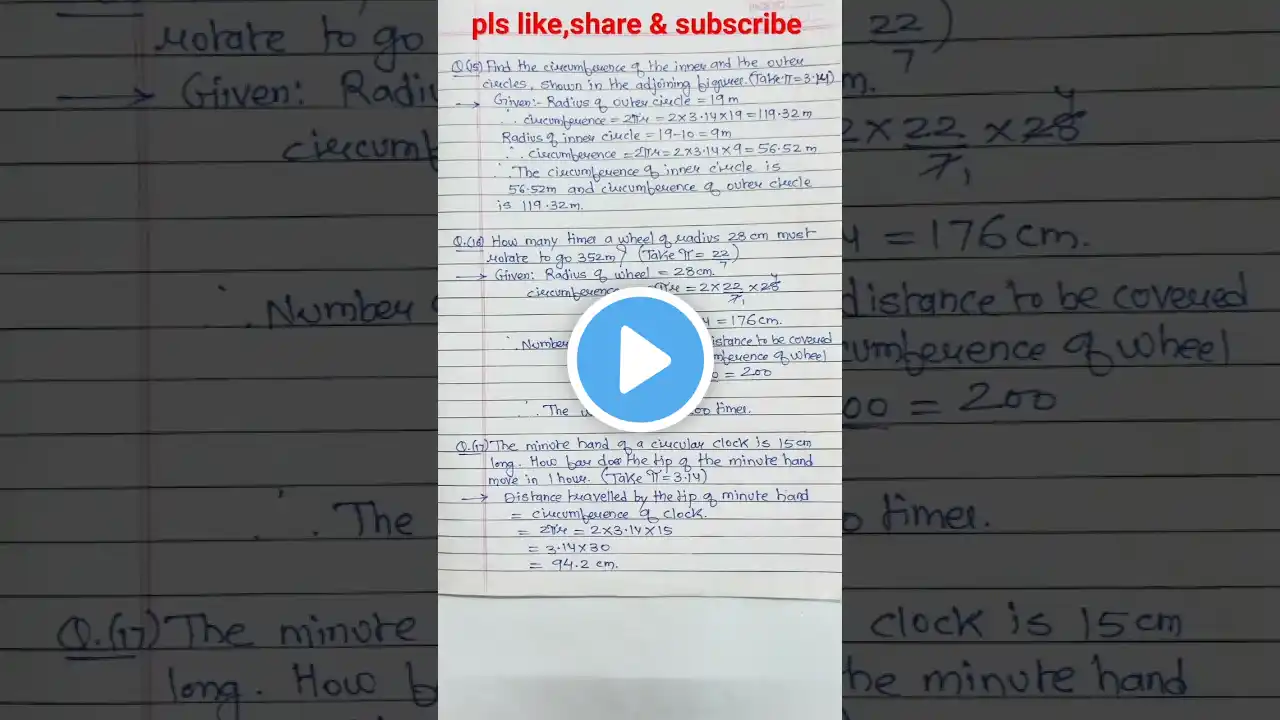 pls like,share & subscribe
Q.(15) Find the circumference of the inner and the outer
circles, shown in the adjoining figure. (Take π = 3.14)
→ Given:- Radius of outer circle = 19m
∴ circumference = 2πr = 2×3.14×19 = 119.32m
Radius of inner circle = 19-10 = 9m
∴ circumference = 2πr = 2×3.14×9 = 56.52m
∴ The circumference of inner circle is
56.52m and circumference of outer circle
is 119.32m.
Q.(16) How many times a wheel of radius 28cm must
rotate to go 352m? (Take π = 22/7)
→ Given: Radius of wheel = 28cm.
circumference = 2πr = 2×22/7×28
= 176cm.
∴ Number distance to be covered
circumference of wheel
= 200
∴ The times.
Q.(17) The minute hand of a circular clock is 15cm
long. How far does the tip of the minute hand
move in 1 hour. (Take π = 3.14)
→ Distance travelled by the tip of minute hand
= circumference of clock.
= 2πr = 2×3.14×15
= 3.14×30
= 94.2 cm.
rotate to go
22/7)
→ Given: Radiu
m.
circumf
2×22/7×28
4 = 176cm.
∴ Number
distance to be covered
cumference of wheel
00 = 200
∴ The
0 times.
Q.(17) The minute
clock is 15cm
long. How
the minute hand